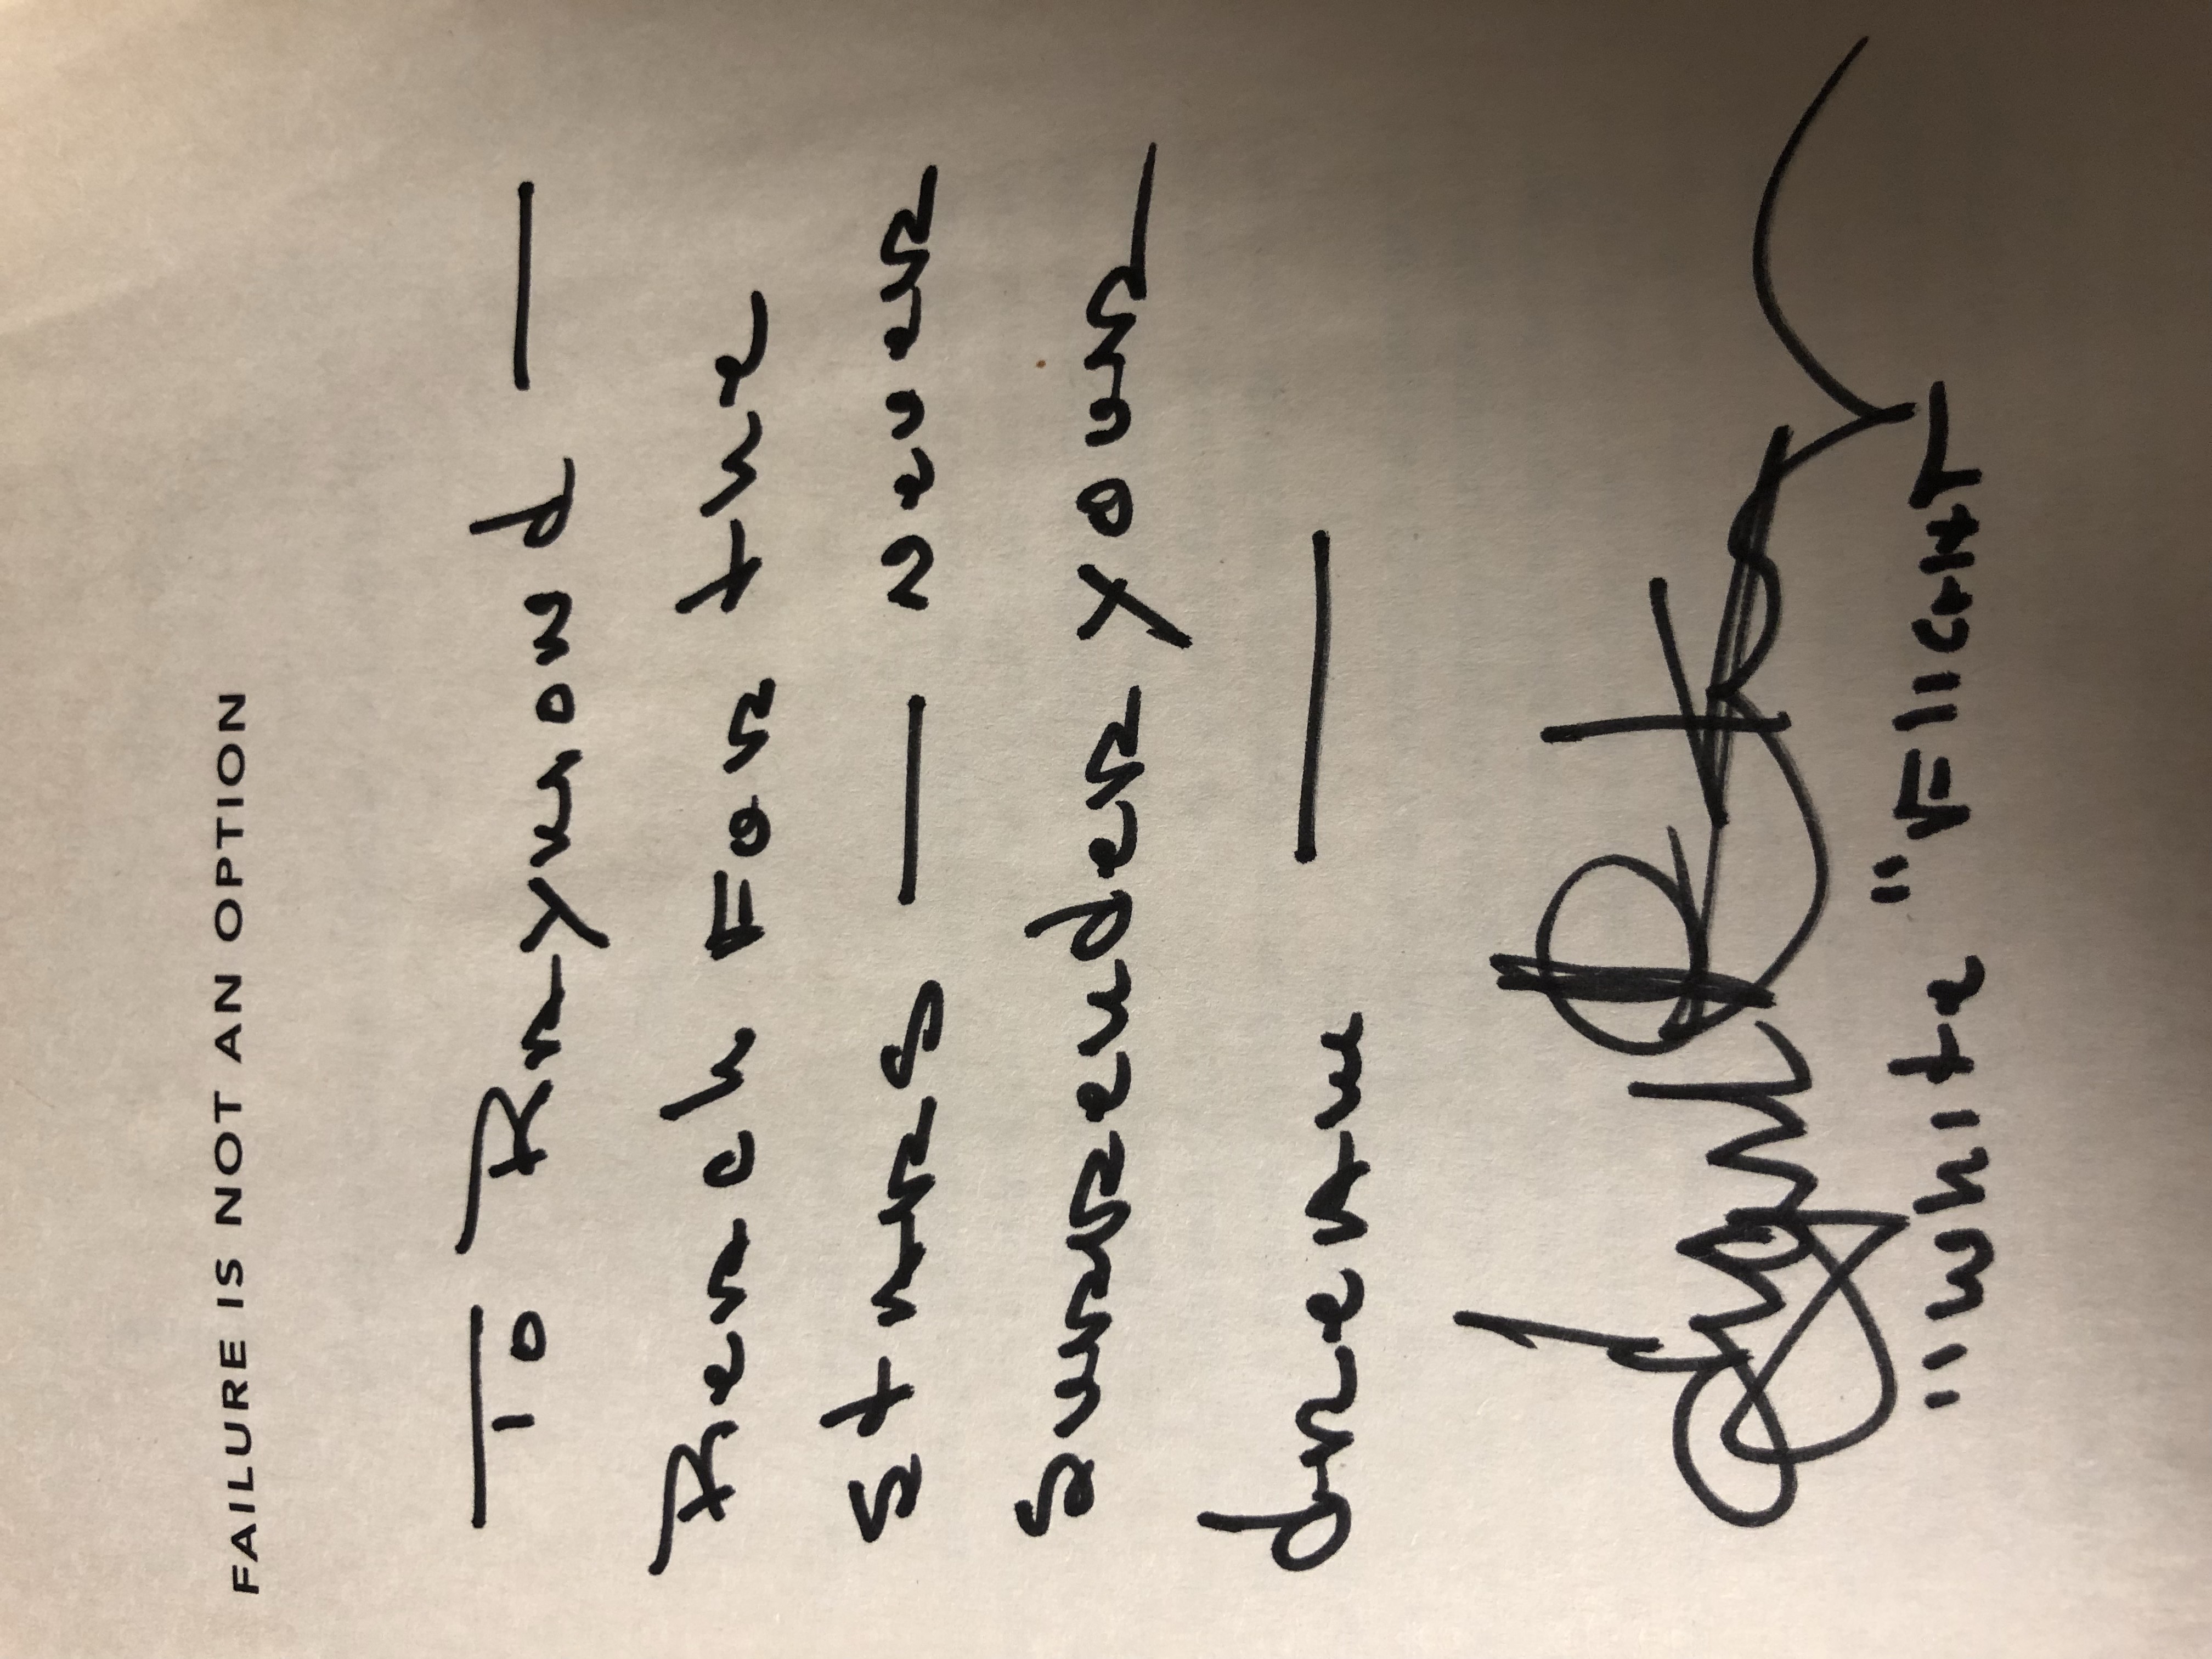 FAILURE IS NOT AN OPTION
To Raymond —
Reach For the
stars — Never
Surrender your
dream —
"White" Flight